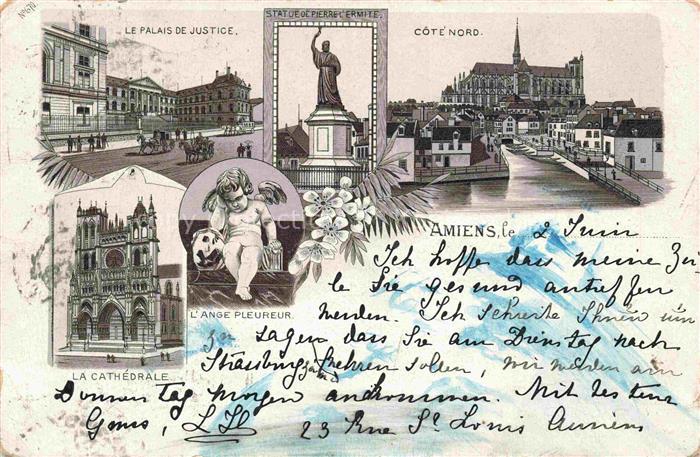 No 670.
LE PALAIS DE JUSTICE.
STATUE DE PIERRE L'ERMITE.
CÔTÉ NORD.
L'ANGE PLEUREUR.
LA CATHÉDRALE.
AMIENS, le 2 Juin
Ich hoffe dass meine Zei
le Sie gesund antreffen
werden. Ich schreibe Ihnen um
zu sagen dass Sie am Dienstag nach
Strasburg fahren sollen, wir werden am
Donnerstag morgen ankommen. Mit besten
Gruss,
23 Rue St Louis Amiens